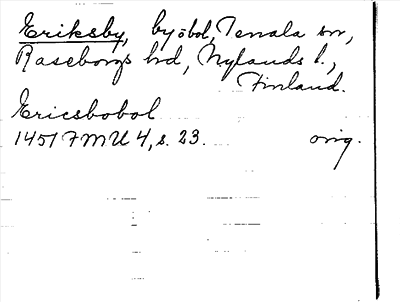 Eriksby, by öbol, Tenala sn,
Raseborgs hd, Nylands l.,
Finland.
Ericsbobol
1451 FMU 4, s. 23. orig.